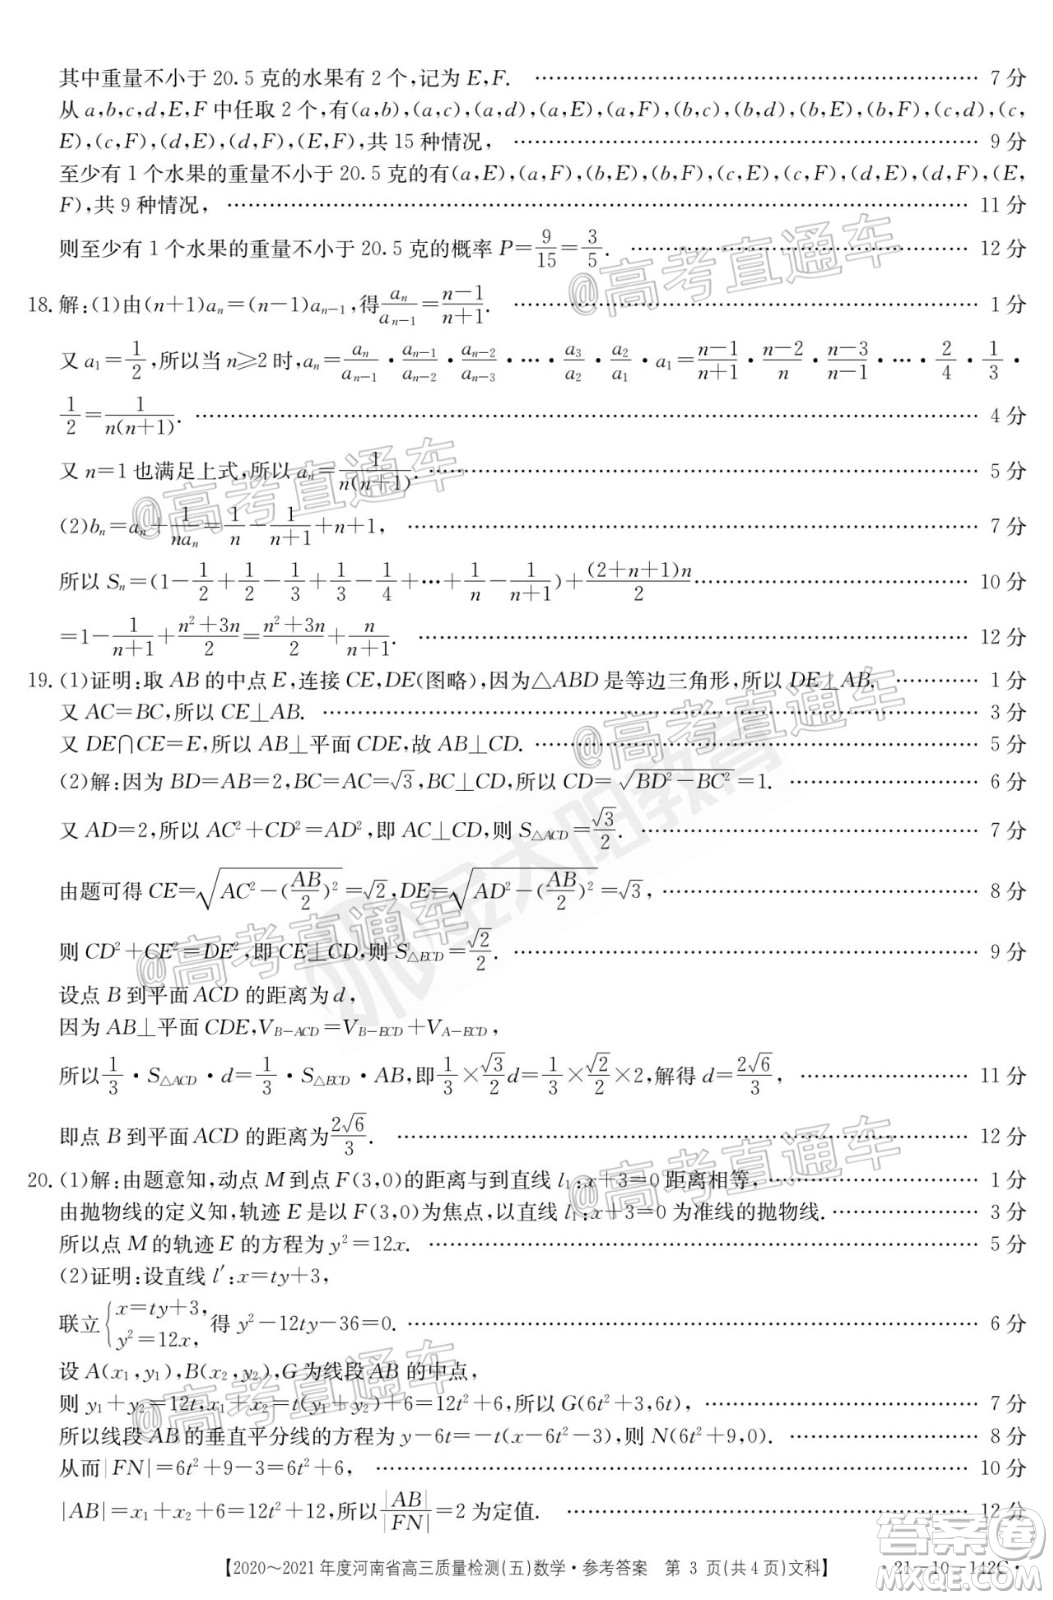 其中重量不小于 20.5 克的水果有 2 个,记为 E,F. …… 7 分
从 a,b,c,d,E,F 中任取 2 个,有(a,b),(a,c),(a,d),(a,E),(a,F),(b,c),(b,d),(b,E),(b,F),(c,d),(c,
E),(c,F),(d,E),(d,F),(E,F),共 15 种情况, …… 9 分
至少有 1 个水果的重量不小于 20.5 克的有(a,E),(a,F),(b,E),(b,F),(c,E),(c,F),(d,E),(d,F),(E,
F),共 9 种情况, …… 11 分
则至少有 1 个水果的重量不小于 20.5 克的概率 P=9/15=3/5. …… 12 分
18.解:(1)由(n+1)aₙ=(n−1)aₙ₋₁,得aₙ/aₙ₋₁=(n−1)/(n+1). …… 1 分
又 a₁=1/2,所以当 n≥2 时,aₙ=aₙ/aₙ₋₁·aₙ₋₁/aₙ₋₂·aₙ₋₂/aₙ₋₃·…·a₃/a₂·a₂/a₁·a₁=(n−1)/(n+1)·(n−2)/n·(n−3)/(n−1)·…·2/4·1/3·
1/2=1/(n(n+1)). …… 4 分
又 n=1 也满足上式,所以 aₙ=1/(n(n+1)). …… 5 分
(2)bₙ=aₙ+1/(naₙ)=1/n−1/(n+1)+n+1, …… 7 分
所以 Sₙ=(1−1/2+1/2−1/3+1/3−1/4+…+1/n−1/(n+1))+(2+n+1)n/2 …… 10 分
=1−1/(n+1)+(n²+3n)/2=(n²+3n)/2+n/(n+1). …… 12 分
19.(1)证明:取 AB 的中点 E,连接 CE,DE(图略),因为△ABD 是等边三角形,所以 DE⊥AB. …… 1 分
又 AC=BC,所以 CE⊥AB. …… 3 分
又 DE∩CE=E,所以 AB⊥平面 CDE,故 AB⊥CD. …… 5 分
(2)解:因为 BD=AB=2,BC=AC=√3,BC⊥CD,所以 CD=√(BD²−BC²)=1. …… 6 分
又 AD=2,所以 AC²+CD²=AD²,即 AC⊥CD,则 S△ACD=√3/2. …… 7 分
由题可得 CE=√(AC²−(AB/2)²)=√2,DE=√(AD²−(AB/2)²)=√3, …… 8 分
则 CD²+CE²=DE²,即 CE⊥CD,则 S△ECD=√2/2. …… 9 分
设点 B 到平面 ACD 的距离为 d,
因为 AB⊥平面 CDE,V_B−ACD=V_B−ECD+V_A−ECD,
所以1/3·S△ACD·d=1/3·S△ECD·AB,即1/3×√3/2d=1/3×√2/2×2,解得 d=2√6/3, …… 11 分
即点 B 到平面 ACD 的距离为2√6/3. …… 12 分
20.(1)解:由题意知,动点 M 到点 F(3,0)的距离与到直线 l₁:x+3=0 距离相等, …… 1 分
由抛物线的定义知,轨迹 E 是以 F(3,0)为焦点,以直线 l₁:x+3=0 为准线的抛物线. …… 3 分
所以点 M 的轨迹 E 的方程为 y²=12x. …… 5 分
(2)证明:设直线 l′:x=ty+3,
联立{x=ty+3, y²=12x, 得 y²−12ty−36=0. …… 6 分
设 A(x₁,y₁),B(x₂,y₂),G 为线段 AB 的中点,
则 y₁+y₂=12t,x₁+x₂=t(y₁+y₂)+6=12t²+6,所以 G(6t²+3,6t), …… 7 分
所以线段 AB 的垂直平分线的方程为 y−6t=−t(x−6t²−3),则 N(6t²+9,0). …… 8 分
从而|FN|=6t²+9−3=6t²+6, …… 10 分
|AB|=x₁+x₂+6=12t²+12,所以|AB|/|FN|=2 为定值. …… 12 分
【2020～2021 年度河南省高三质量检测(五)数学·参考答案 第 3 页(共 4 页)文科】 ·21-10-142C·
@高考直通车
@高考直通车
@高考直通车
@高考直通车
@高考直通车
@高考直通车
答案圈
MXQE.COM